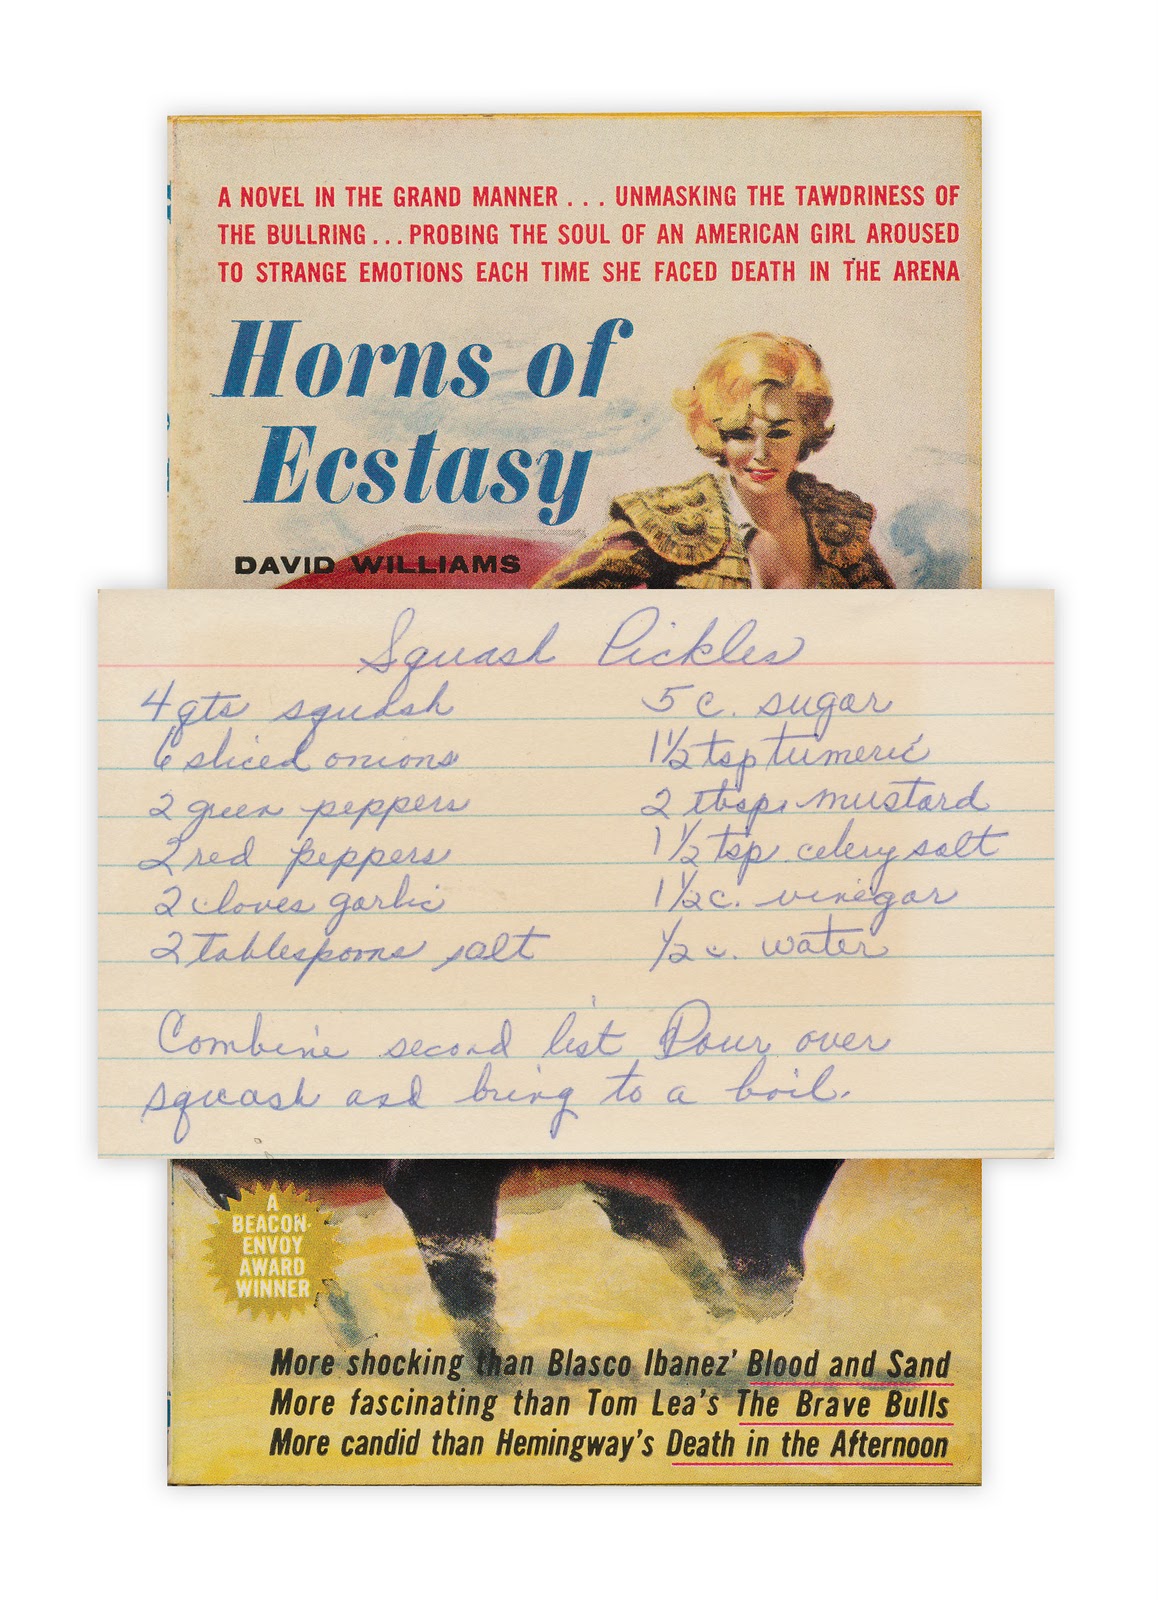 A NOVEL IN THE GRAND MANNER . . . UNMASKING THE TAWDRINESS OF
THE BULLRING . . . PROBING THE SOUL OF AN AMERICAN GIRL AROUSED
TO STRANGE EMOTIONS EACH TIME SHE FACED DEATH IN THE ARENA
Horns of
Ecstasy
DAVID WILLIAMS
Squash Pickles
4 qts squash
6 sliced onions
2 green peppers
2 red peppers
2 cloves garlic
2 tablespoons salt
5 c. sugar
1 1/2 tsp tumeric
2 tbsp. mustard
1 1/2 tsp. celery salt
1 1/2 c. vinegar
1/2 c. water
Combine second list Pour over
squash and bring to a boil.
A
BEACON-
ENVOY
AWARD
WINNER
More shocking than Blasco Ibanez' Blood and Sand
More fascinating than Tom Lea's The Brave Bulls
More candid than Hemingway's Death in the Afternoon